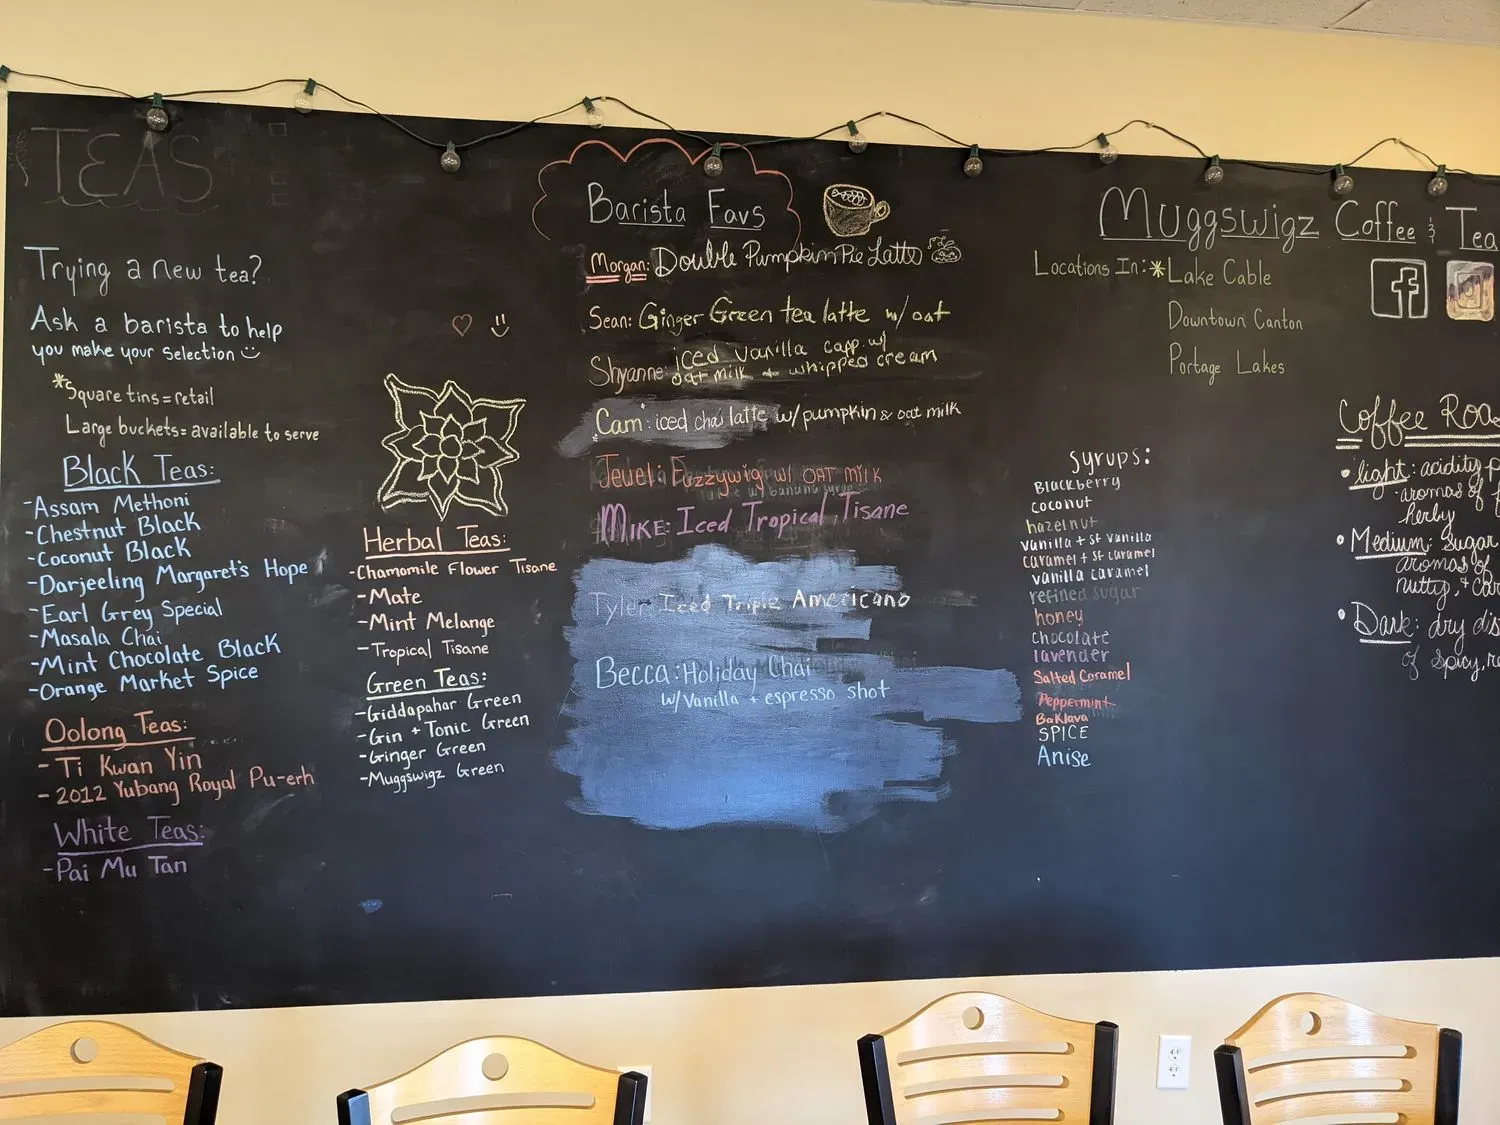 TEAS
Trying a new tea?
Ask a barista to help
you make your selection
*Square tins = retail
Large buckets = available to serve
Black Teas:
-Assam Methoni
-Chestnut Black
-Coconut Black
-Darjeeling Margaret's Hope
-Earl Grey Special
-Masala Chai
-Mint Chocolate Black
-Orange Market Spice
Oolong Teas:
- Ti Kwan Yin
- 2012 Yubang Royal Pu-erh
White Teas:
-Pai Mu Tan
Herbal Teas:
-Chamomile Flower Tisane
-Mate
-Mint Melange
-Tropical Tisane
Green Teas:
-Giddapahar Green
-Gin + Tonic Green
-Ginger Green
-Muggswigz Green
Barista Favs
Morgan: Double Pumpkin Pie Latte
Sean: Ginger Green tea latte w/ oat
Shyanne: iced vanilla capp. w/
oat milk + whipped cream
Cam: iced chai latte w/ pumpkin & oat milk
Jewel: Fuzzywig w/ OAT MILK
MIKE: Iced Tropical Tisane
Tyler Iced Triple Americano
Becca: Holiday Chai
w/ Vanilla + espresso shot
Muggswigz Coffee & Tea
Locations In: *Lake Cable
Downtown Canton
Portage Lakes
f
Syrups:
Blackberry
coconut
hazelnut
vanilla + sf vanilla
caramel + sf caramel
vanilla caramel
refined sugar
honey
chocolate
lavender
Salted Caramel
Peppermint
Baklava
SPICE
Anise
Coffee Roa
• light: acidity
aromas of
herby
• Medium: sugar
aromas of
nutty, +
• Dark: dry
of spicy,